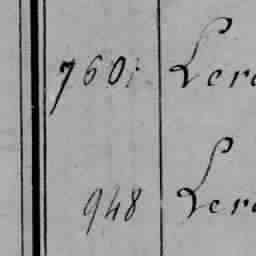 760. Lero
948 Lero